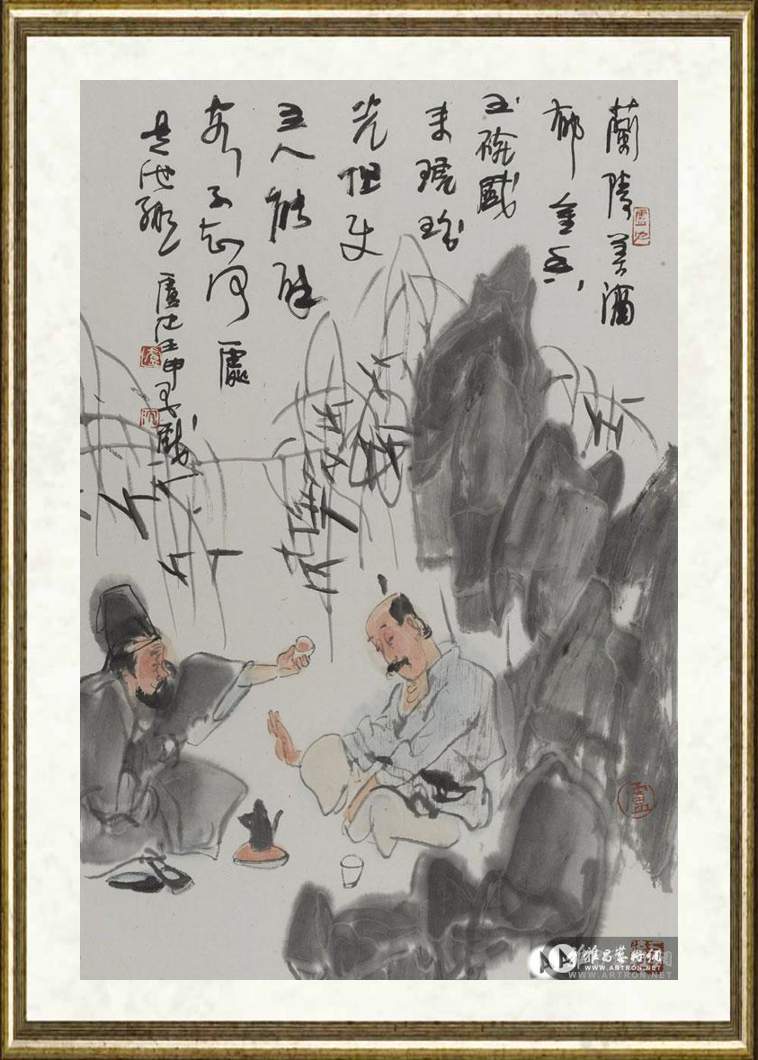 蘭陵美酒
郁金香
玉碗盛
来琥珀
光但使
主人能醉
客不知何處
是他鄉 盧沉壬申
雅昌藝術網
WWW.ARTRON.NET